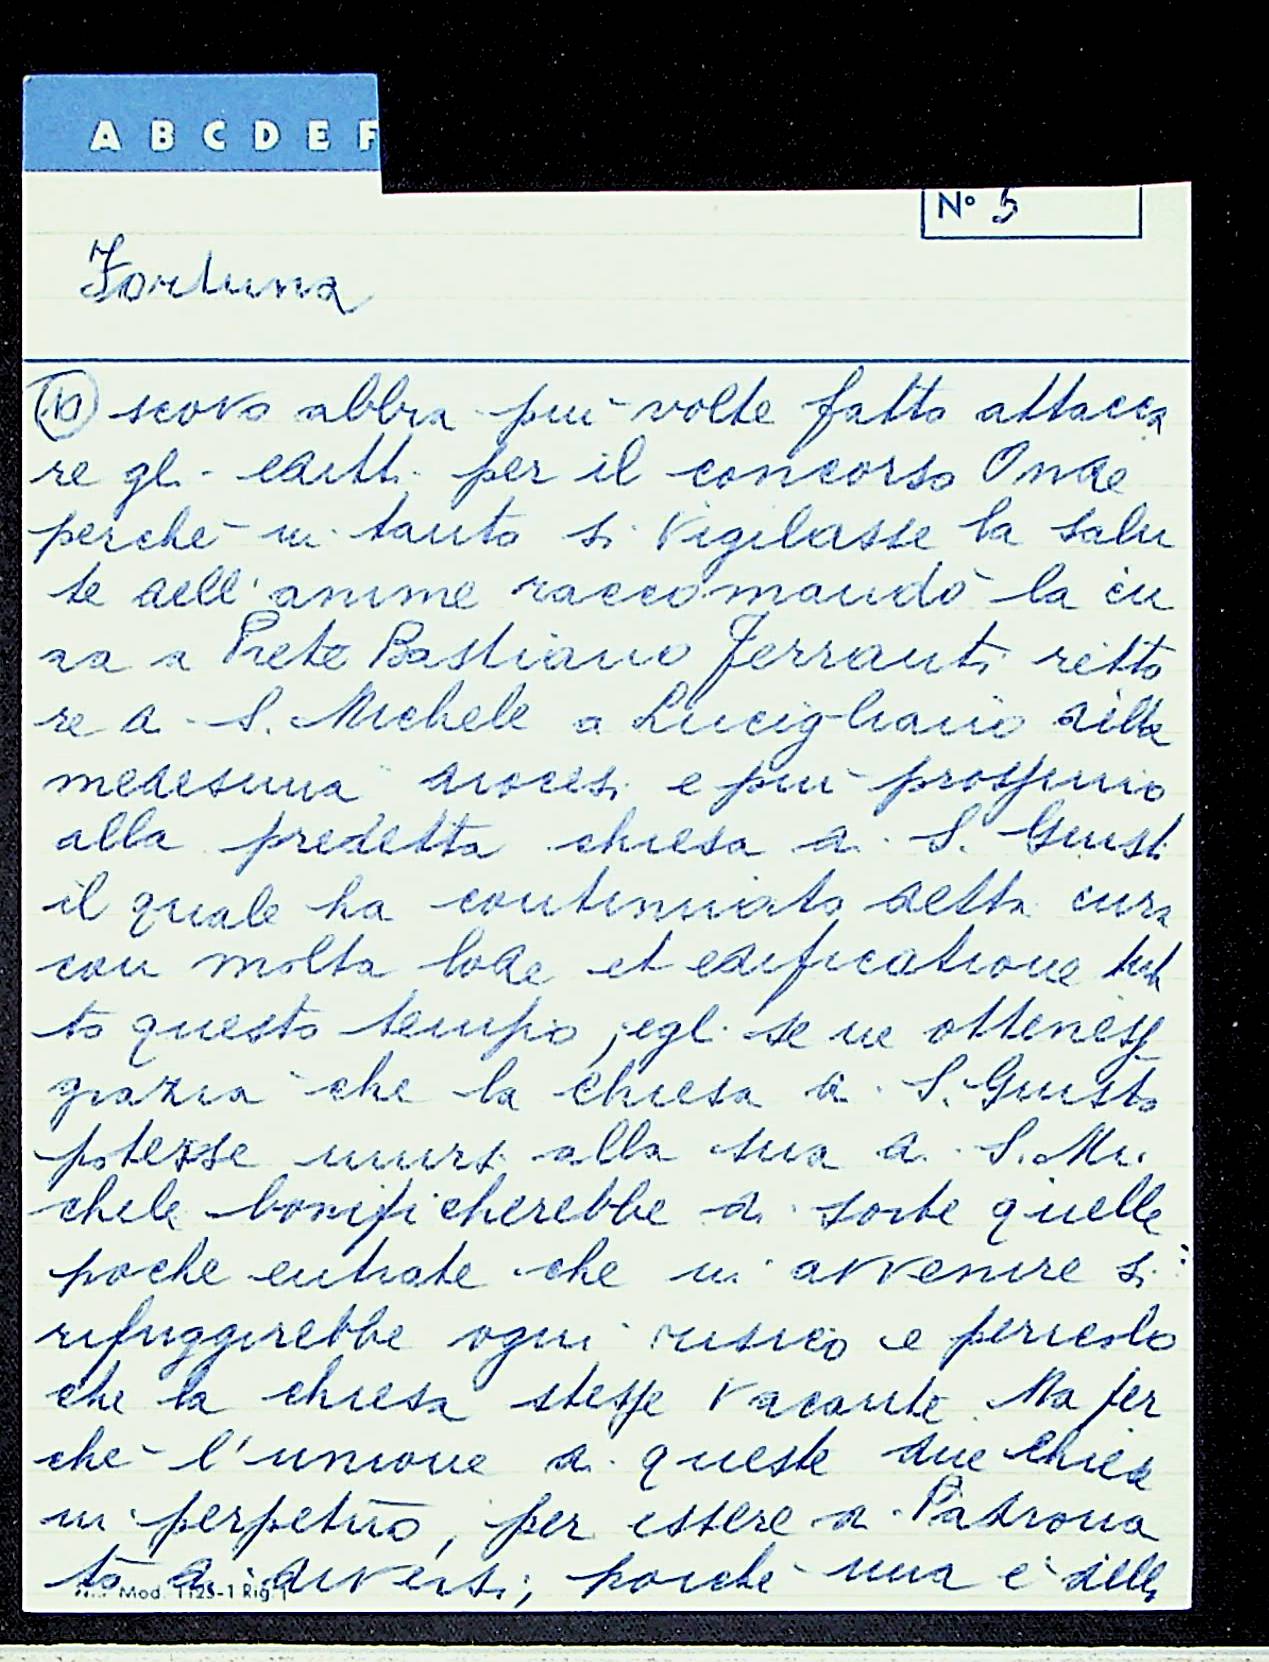 A B C D E F
N° 5
Fortuna
(10) scovo abbia più volte fatto attacca
re gli editti per il concorso Onde
perché in tanto si vigilasse la salu
te dell'anime raccomandò la cu
ra a Prete Bastiano Ferranti retto
re di S. Michele a Lucigliano della
medesima diocesi e più prossimo
alla predetta chiesa di S. Giusto
il quale ha continuato detta cura
con molta lode et edificatione tut
to questo tempo, egli se ne ottenesse
grazia che la chiesa di S. Giusto
potesse unirsi alla sua di S. Mi
chele bonificherebbe di sorte quelle
poche entrate che in avvenire si
rifuggirebbe ogni risico e pericolo
che la chiesa stesse vacante. Ma per
ché l'unione di queste due chiese
in perpetuo, per essere di Patrona
to di diversi; poiché una è della
Mod. 1125-1 Rig. 1